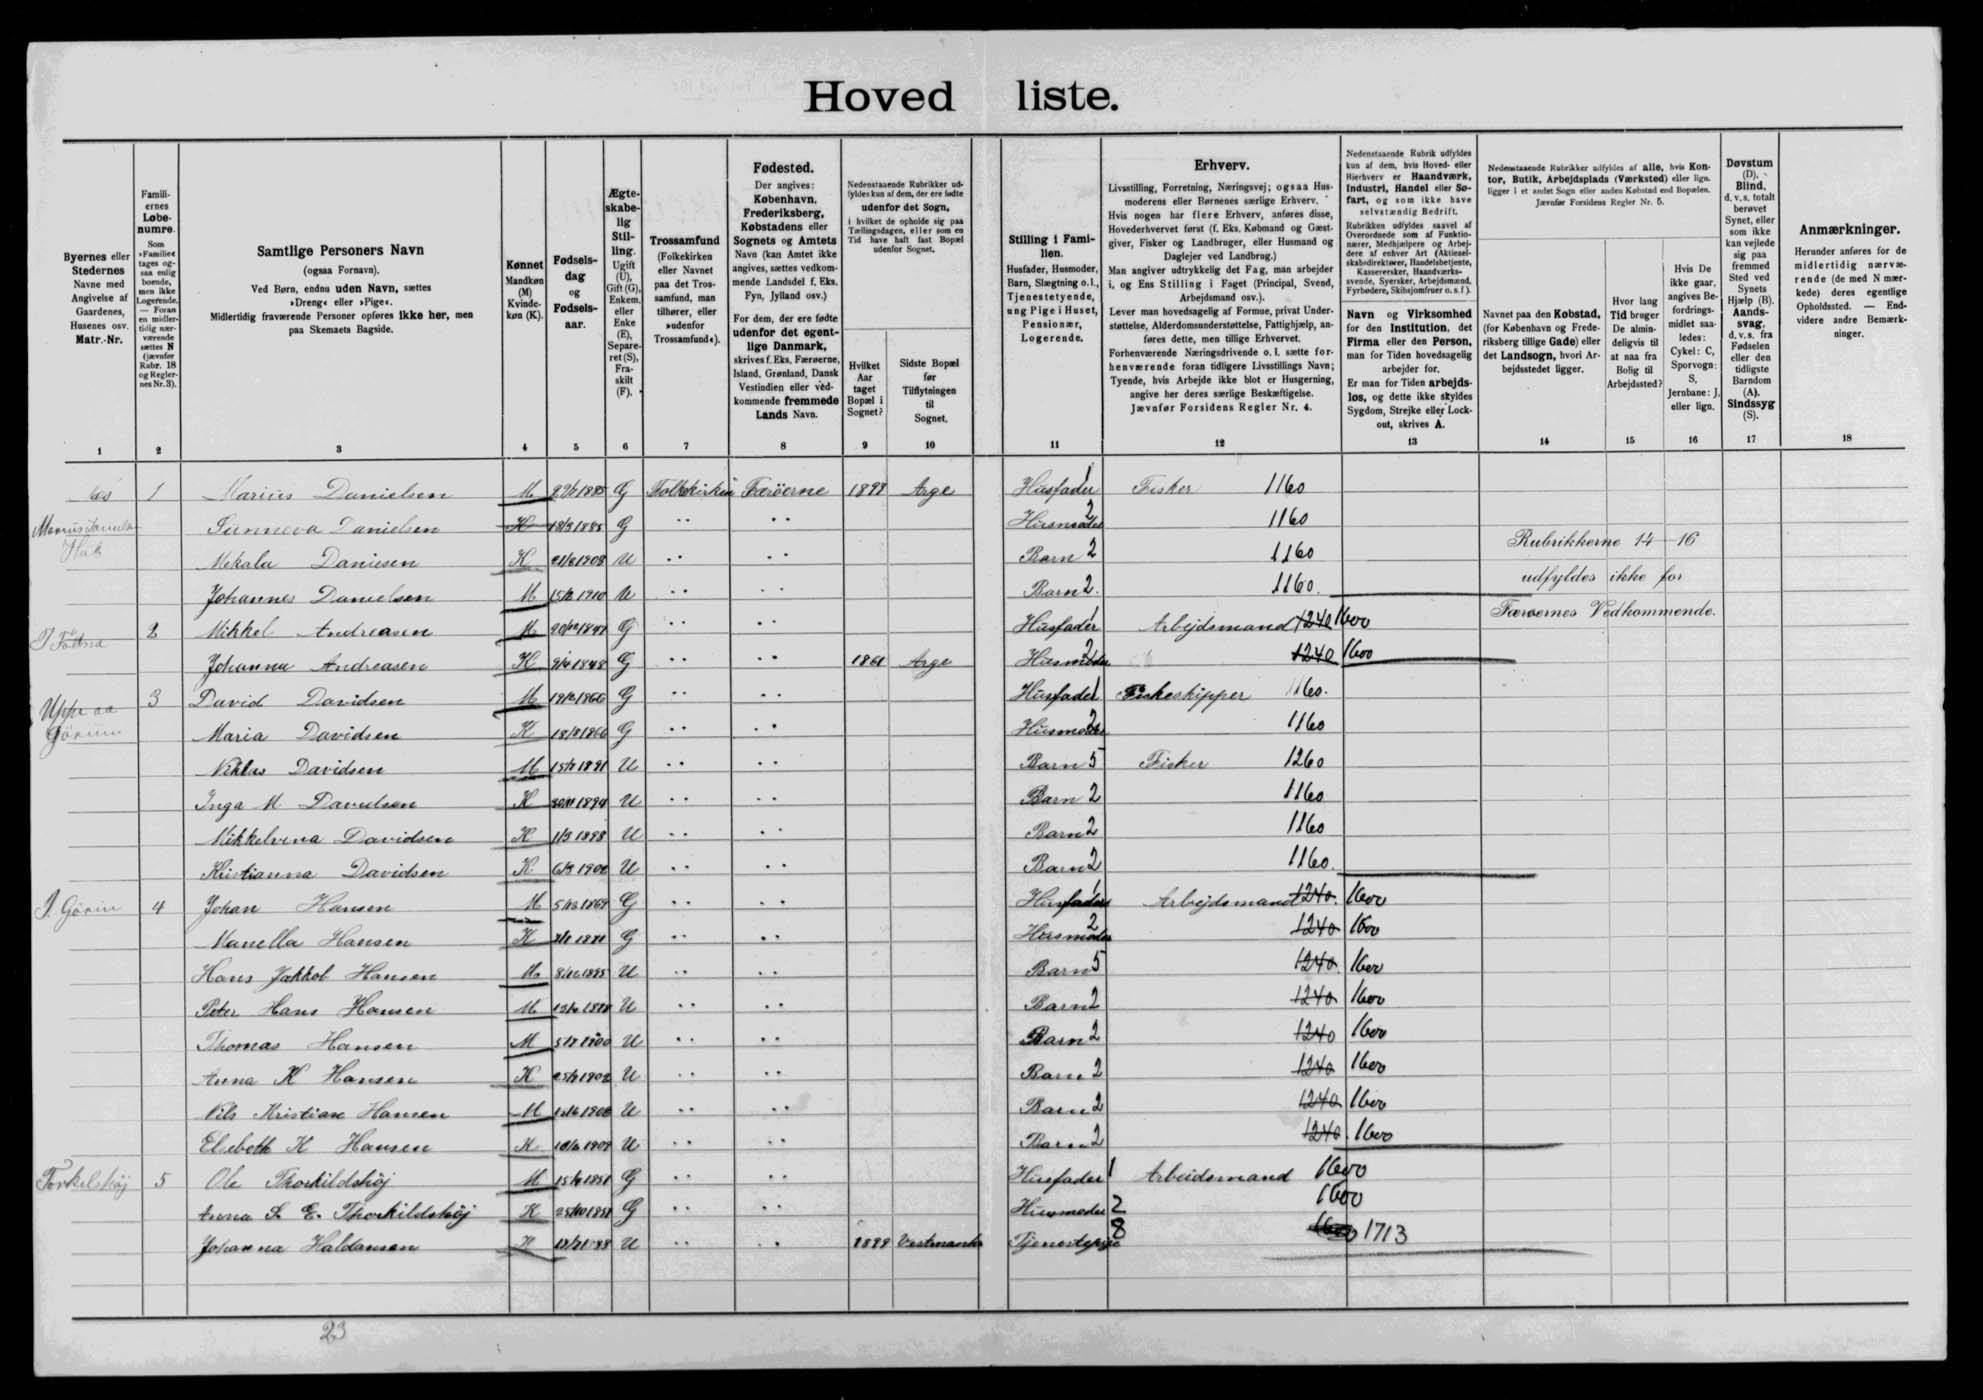 Hoved liste.
Byernes eller Stedernes Navne med Angivelse af Gaardenes, Husenes osv. Matr.-Nr.
Familiernes Løbenumre. Som »Familie« tages ogsaa enlig boende, men ikke Logerende. — Foran en midlertidig nærværende sættes N (jævnfør Rubr. 18 og Regler-nes Nr. 3).
Samtlige Personers Navn (ogsaa Fornavn). Ved Børn, endnu uden Navn, sættes »Dreng« eller »Pige«. Midlertidig fraværende Personer opføres ikke her, men paa Skemaets Bagside.
Kønnet Mandkøn (M) Kvindekøn (K).
Fødselsdag og Fødselsaar.
Ægteskabelig Stilling. Ugift (U), Gift (G), Enkem. eller Enke (E), Separeret (S), Fraskilt (F).
Trossamfund (Folkekirken eller Navnet paa det Trossamfund, man tilhører, eller »udenfor Trossamfund«).
Fødested. Der angives: København, Frederiksberg, Købstadens eller Sognets og Amtets Navn (kan Amtet ikke angives, sættes vedkommende Landsdel f. Eks. Fyn, Jylland osv.) For dem, der ere fødte udenfor det egentlige Danmark, skrives f. Eks. Færøerne, Island, Grønland, Dansk Vestindien eller vedkommende fremmede Lands Navn.
Nedenstaaende Rubrikker udfyldes kun af dem, der ere fødte udenfor det Sogn, i hvilket de opholde sig paa Tællingsdagen, eller som en Tid have haft fast Bopæl udenfor Sognet.
Hvilket Aar taget Bopæl i Sognet?
Sidste Bopæl før Tilflytningen til Sognet.
Stilling i Familien. Husfader, Husmoder, Barn, Slægtning o.l., Tjenestetyende, ung Pige i Huset, Pensionær, Logerende.
Erhverv. Livsstilling, Forretning, Næringsvej; ogsaa Husmoderens eller Børnenes særlige Erhverv. Hvis nogen har flere Erhverv, anføres disse, Hovederhvervet først (f. Eks. Købmand og Gæstgiver, Fisker og Landbruger, eller Husmand og Daglejer ved Landbrug.) Man angiver udtrykkelig det Fag, man arbejder i, og Ens Stilling i Faget (Principal, Svend, Arbejdsmand osv.). Lever man hovedsagelig af Formue, privat Understøttelse, Alderdomsunderstøttelse, Fattighjælp, anføres dette, men tillige Erhvervet. Forhenværende Næringsdrivende o. l. sætte forhenværende foran tidligere Livsstillings Navn; Tyende, hvis Arbejde ikke blot er Husgerning, angive her deres særlige Beskæftigelse. Jævnfør Forsidens Regler Nr. 4.
Nedenstaaende Rubrik udfyldes kun af dem, hvis Hoved- eller Bierhverv er Haandværk, Industri, Handel eller Søfart, og som ikke have selvstændig Bedrift.
Rubrikken udfyldes saavel af Overordnede som af Funktionærer, Medhjælpere og Arbejdere af enhver Art (Aktieselskabsdirektører, Handelsbetjente, Kasserersker, Haandværkssvende, Syersker, Arbejdsmænd, Fyrbødere, Skibsjomfruer o. s. f.).
Navn og Virksomhed for den Institution, det Firma eller den Person, man for Tiden hovedsagelig arbejder for. Er man for Tiden arbejdsløs, og dette ikke skyldes Sygdom, Strejke eller Lockout, skrives A.
Nedenstaaende Rubrikker udfyldes af alle, hvis Kontor, Butik, Arbejdsplads (Værksted) eller lign. ligger i et andet Sogn eller anden Købstad end Bopælen. Jævnfør Forsidens Regler Nr. 5.
Navnet paa den Købstad, (for København og Frederiksberg tillige Gade) eller det Landsogn, hvori Arbejdsstedet ligger.
Hvor lang Tid bruger De almindeligvis til at naa fra Bolig til Arbejdssted?
Hvis De ikke gaar, angives Befordringsmidlet saaledes: Cykel: C, Sporvogn: S, Jernbane: J, eller lign.
Døvstum (D). Blind, d. v. s. totalt berøvet Synet, eller som ikke kan vejlede sig paa fremmed Sted ved Synets Hjælp (B). Aandssvag, d. v. s. fra Fødselen eller den tidligste Barndom (A). Sindssyg (S).
Anmærkninger. Herunder anføres for de midlertidig nærværende (de med N mærkede) deres egentlige Opholdssted. — Endvidere andre Bemærkninger.
1 2 3 4 5 6 7 8 9 10 11 12 13 14 15 16 17 18
1 Marius Danielsen M G Folkekirken Færøerne Arge Husfader 1 Fisker 1160
Sunneva Danielsen K G " " Husmoder 2 1160
Mekala Daniesen K U " " Barn 2 1160
Rubrikkerne 14-16
Johannes Danielsen M U " " Barn 2. 1160.
udfyldes ikke for
2 Mikkel Andreasen M G " " Husfader 1 Arbejdsmand 1240 1600
Færøernes Vedkommende.
Johanna Andreasen K G " " 1861 Arge Husmoder 2 1240 1600
3 David Davidsen M G " " Husfader 1 Fiskeskipper 1160.
Maria Davidsen K G " " Husmoder 2 1160
Niklas Davidsen M U " " Barn 5 Fisker 1260
Inga M Davidsen K U " " Barn 2 1160
Mikkelvina Davidsen K 1/3 1898 U " " Barn 2 1160
Kristianna Davidsen K U " " Barn 2 1160.
4 Johan Hansen M G " " Husfader 1 Arbejdsmand 1240. 1600
Manella Hansen K G " " Husmoder 2 1240 1600
Hans Jakkob Hansen M U " " Barn 5 1240. 1600
Peter Hans Hansen M U " " Barn 2 1240 1600
Thomas Hansen M U " " Barn 2 1240 1600
Anna K Hansen K U " " Barn 2 1240 1600
Nils Kristian Hansen M U " " Barn 2 1240 1600
Elsebeth K Hansen K U " " Barn 2 1240 1600
Torkelshøj 5 Ole Thorkildshøj M G " " Husfader 1 Arbeidsmand 1600
Anna S. E. Thorkildshøj K G " " Husmoder 2 1600
Johanna Haldansen K U " " 1899 Tjenestepige 8 1713
23